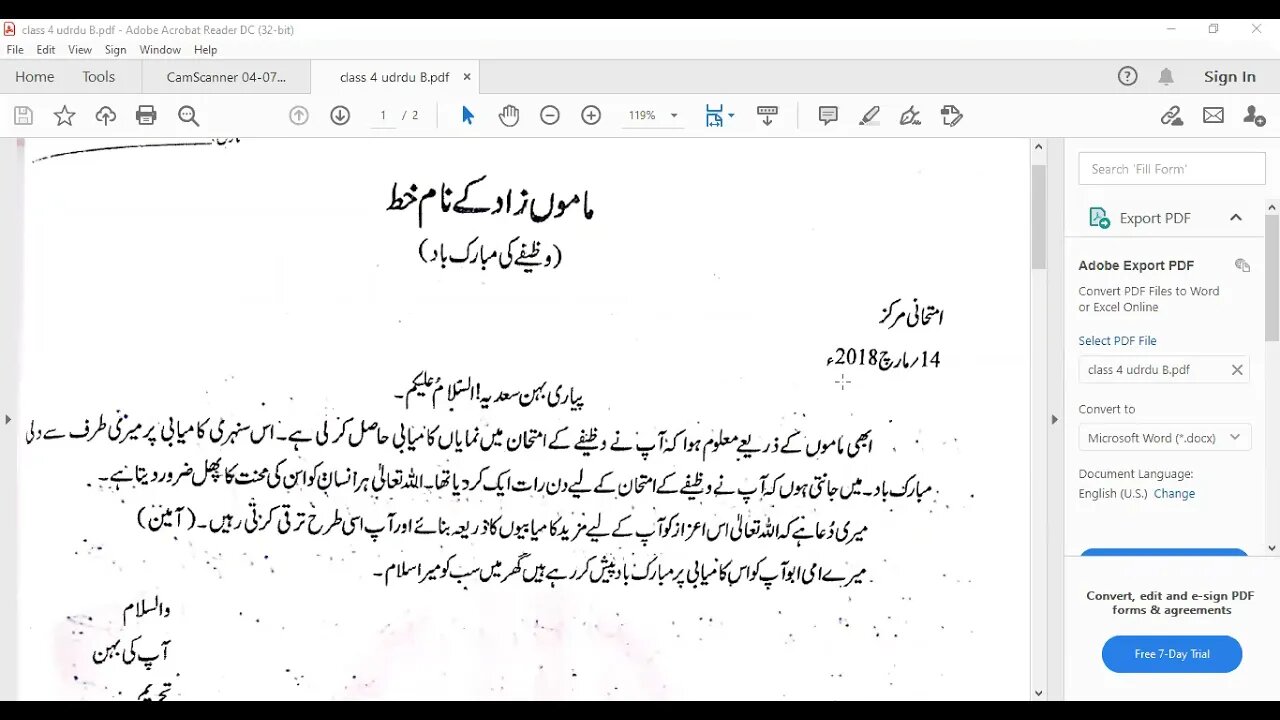 class 4 udrdu B.pdf - Adobe Acrobat Reader DC (32-bit)
File Edit View Sign Window Help
Home Tools CamScanner 04-07... class 4 udrdu B.pdf × Sign In
1 / 2 119%
ماموں زاد کے نام خط
(وظیفے کی مبارک باد)
امتحانی مرکز
14؍مارچ 2018ء
پیاری بہن سعدیہ! السّلامُ علیکم۔
ابھی ماموں کے ذریعے معلوم ہوا کہ آپ نے وظیفے کے امتحان میں نمایاں کامیابی حاصل کر لی ہے۔ اس سنہری کامیابی پر میری طرف سے دلی
مبارک باد۔ میں جانتی ہوں کہ آپ نے وظیفے کے امتحان کے لیے دن رات ایک کر دیا تھا۔ اللہ تعالیٰ ہر انسان کو اس کی محنت کا پھل ضرور دیتا ہے۔
میری دُعا ہے کہ اللہ تعالیٰ اس اعزاز کو آپ کے لیے مزید کامیابیوں کا ذریعہ بنائے اور آپ اسی طرح ترقی کرتی رہیں۔ (آمین)
میرے امی ابو آپ کو اس کامیابی پر مبارک باد پیش کر رہے ہیں گھر میں سب کو میرا سلام۔
والسلام
آپ کی بہن
تحریم
Search 'Fill Form'
Export PDF
Adobe Export PDF
Convert PDF Files to Word
or Excel Online
Select PDF File
class 4 udrdu B.pdf
Convert to
Microsoft Word (*.docx)
Document Language:
English (U.S.) Change
Convert, edit and e-sign PDF
forms & agreements
Free 7-Day Trial